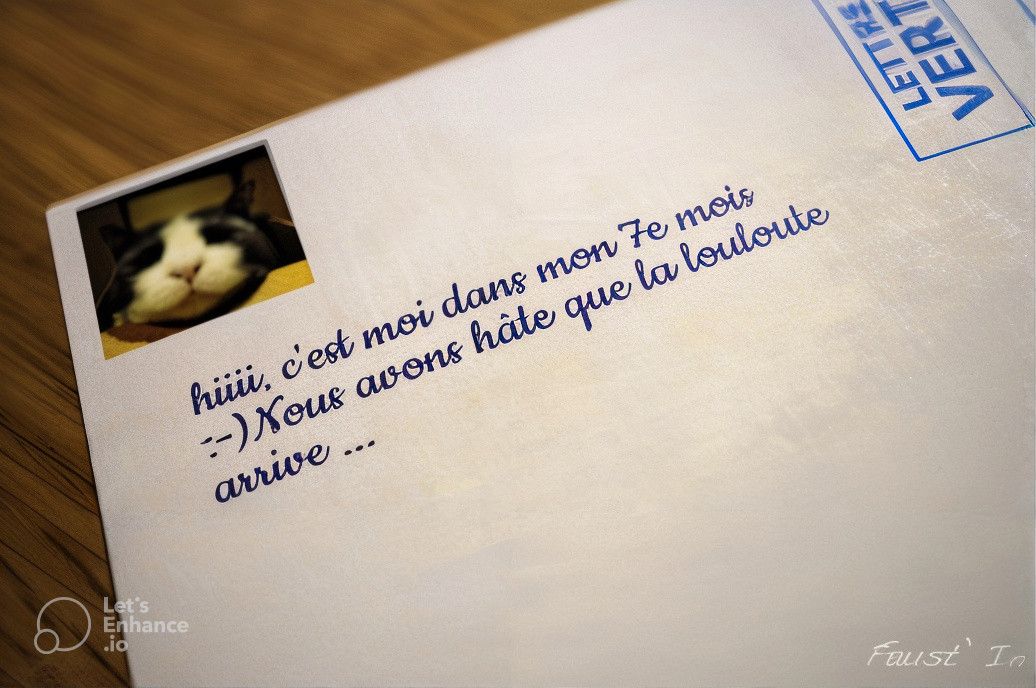 LETTRE
VERT
hiiii, c'est moi dans mon 7e mois
:-) Nous avons hâte que la louloute
arrive ...
Let's
Enhance
.io
Faust' In